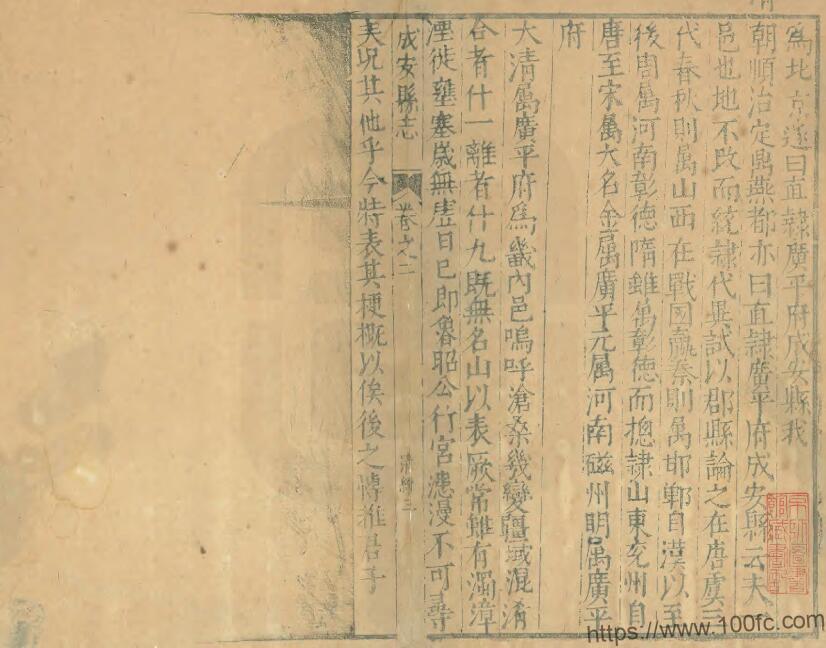 爲北京遂曰直隸廣平府成安縣我
朝順治定鼎燕都亦曰直隸廣平府成安縣云夫
邑也地不改而統隸代異試以郡縣論之在唐虞三
代春秋則萬山西在戰國嬴秦則萬邯鄲自漢以至
後周萬河南彰德隋雖萬彰德而摠隷山東兖州自
唐至宋萬大名金属廣平元属河南磁州明萬廣平
府
大清萬廣平府爲畿內邑嗚呼滄桑幾變疆域混淆
合者什一離者什九既無名山以表厥常雖有濁漳
湮徙壅塞歲無虗日已即魯昭公行宮漶漫不可尋
成安縣志 卷之二 清 三
矣况其他乎今特表其梗概以俟後之博雅君子
https://www.100fc.com